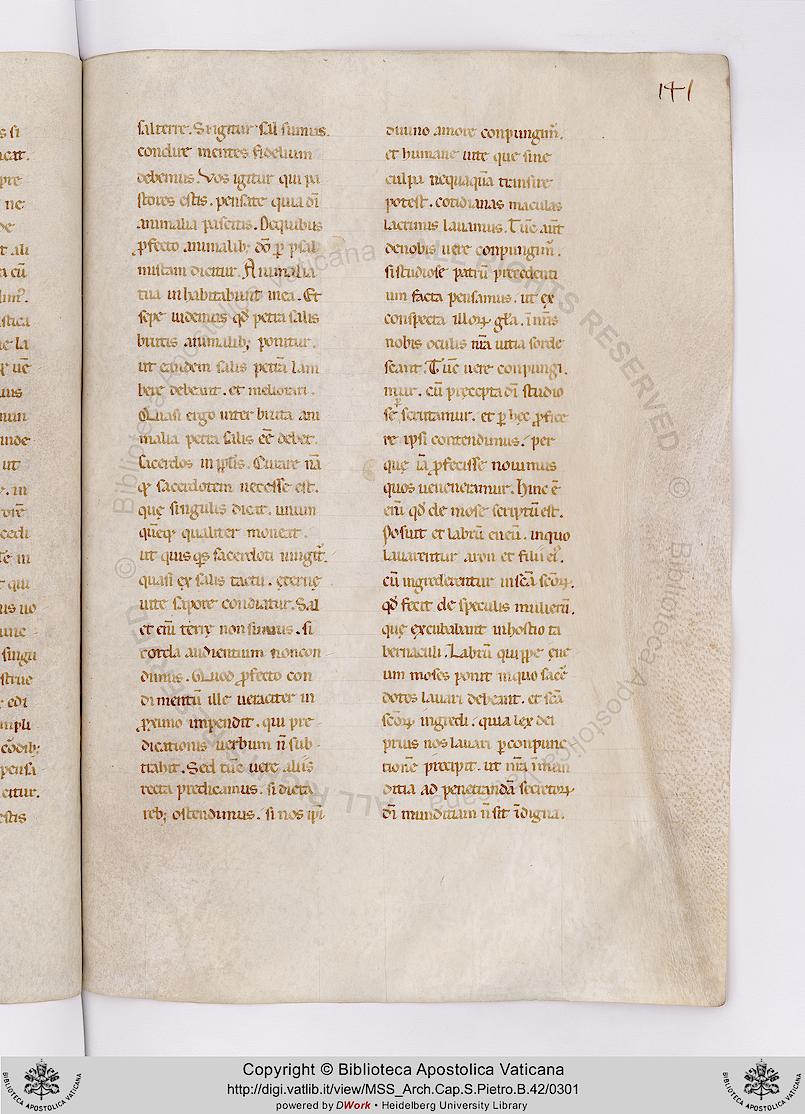 141
sal terre. Si igitur sal sumus.
condire mentes fidelium
debemus. Vos igitur qui pa
stores estis. pensate quia dī
animalia pascitis. De quibus
ꝓfecto animalib; dō ꝑ psal
mistam dicitur. Animalia
tua inhabitabunt in ea. Et
sepe videmus qd̄ petra salis
brutis animalib; ponitur.
ut ex eadem salis petra lam
bere debeant. et meliorari.
Quasi ergo inter bruta ani
malia petra salis eē debet.
sacerdos in pplīs. Curare nā
qꝫ sacerdotem necesse est.
quę singulis dicat. unum
quēqꝫ qualiter moneat.
ut quis qs sacerdoti iungit᷑.
quasi ex salis tactu. ęternę
uite sapore condiatur. Sal
et eni terrę non sumus. si
corda audientium non con
dimus. Quod ꝓfecto con
dimentū ille veraciter in
ꝓximo impendit. qui pre
dicationis uerbum n̄ sub
trahit. Sed tūc uere aliis
recta predicamus. si dicta
reb; ostendimus. si nos ipi
diuino amore conpungim᷒.
et humane uite que sine
culpa nequaquā transire
potest. cotidianas maculas
lacrimis lauamus. Tūc aūt
de nobis uere conpungim᷒.
si studiose patrū precedenti
um facta pensamus. ut ex
conspecta illoꝝ gl̄a. in nr̄is
nobis oculis nr̄a uita sorde
scant. Tūc uere conpungi
mur. cū precepta dī studio
se scrutamur. et ꝑ hęc ꝓfice
re ipsi contendimus. per
quę iā ꝓfecisse nouimus
quos ueneneramur. Hinc ē
eni qd̄ de mose scriptū est.
Posuit et labrū eneū. in quo
lauarentur aron et filii ei᷒.
cū ingrederentur in scā scōꝝ.
qd̄ fecit de speculis mulierū.
quę excubabant in hostio ta
bernaculi. Labrū quippe ęne
um moses ponit in quo sacē
dotes lauari debeant. et scā
scōꝝ ingredi. quia lex dei
prius nos lauari ꝑ conpunc
tionē precipit. ut nr̄a inmun
ditia ad penetrandā secretoꝝ
dī munditiam n̄ sit indigna.
Copyright © Biblioteca Apostolica Vaticana
http://digi.vatlib.it/view/MSS_Arch.Cap.S.Pietro.B.42/0301
powered by DWork • Heidelberg University Library
BIBLIOTECA APOSTOLICA VATICANA
BIBLIOTECA APOSTOLICA VATICANA